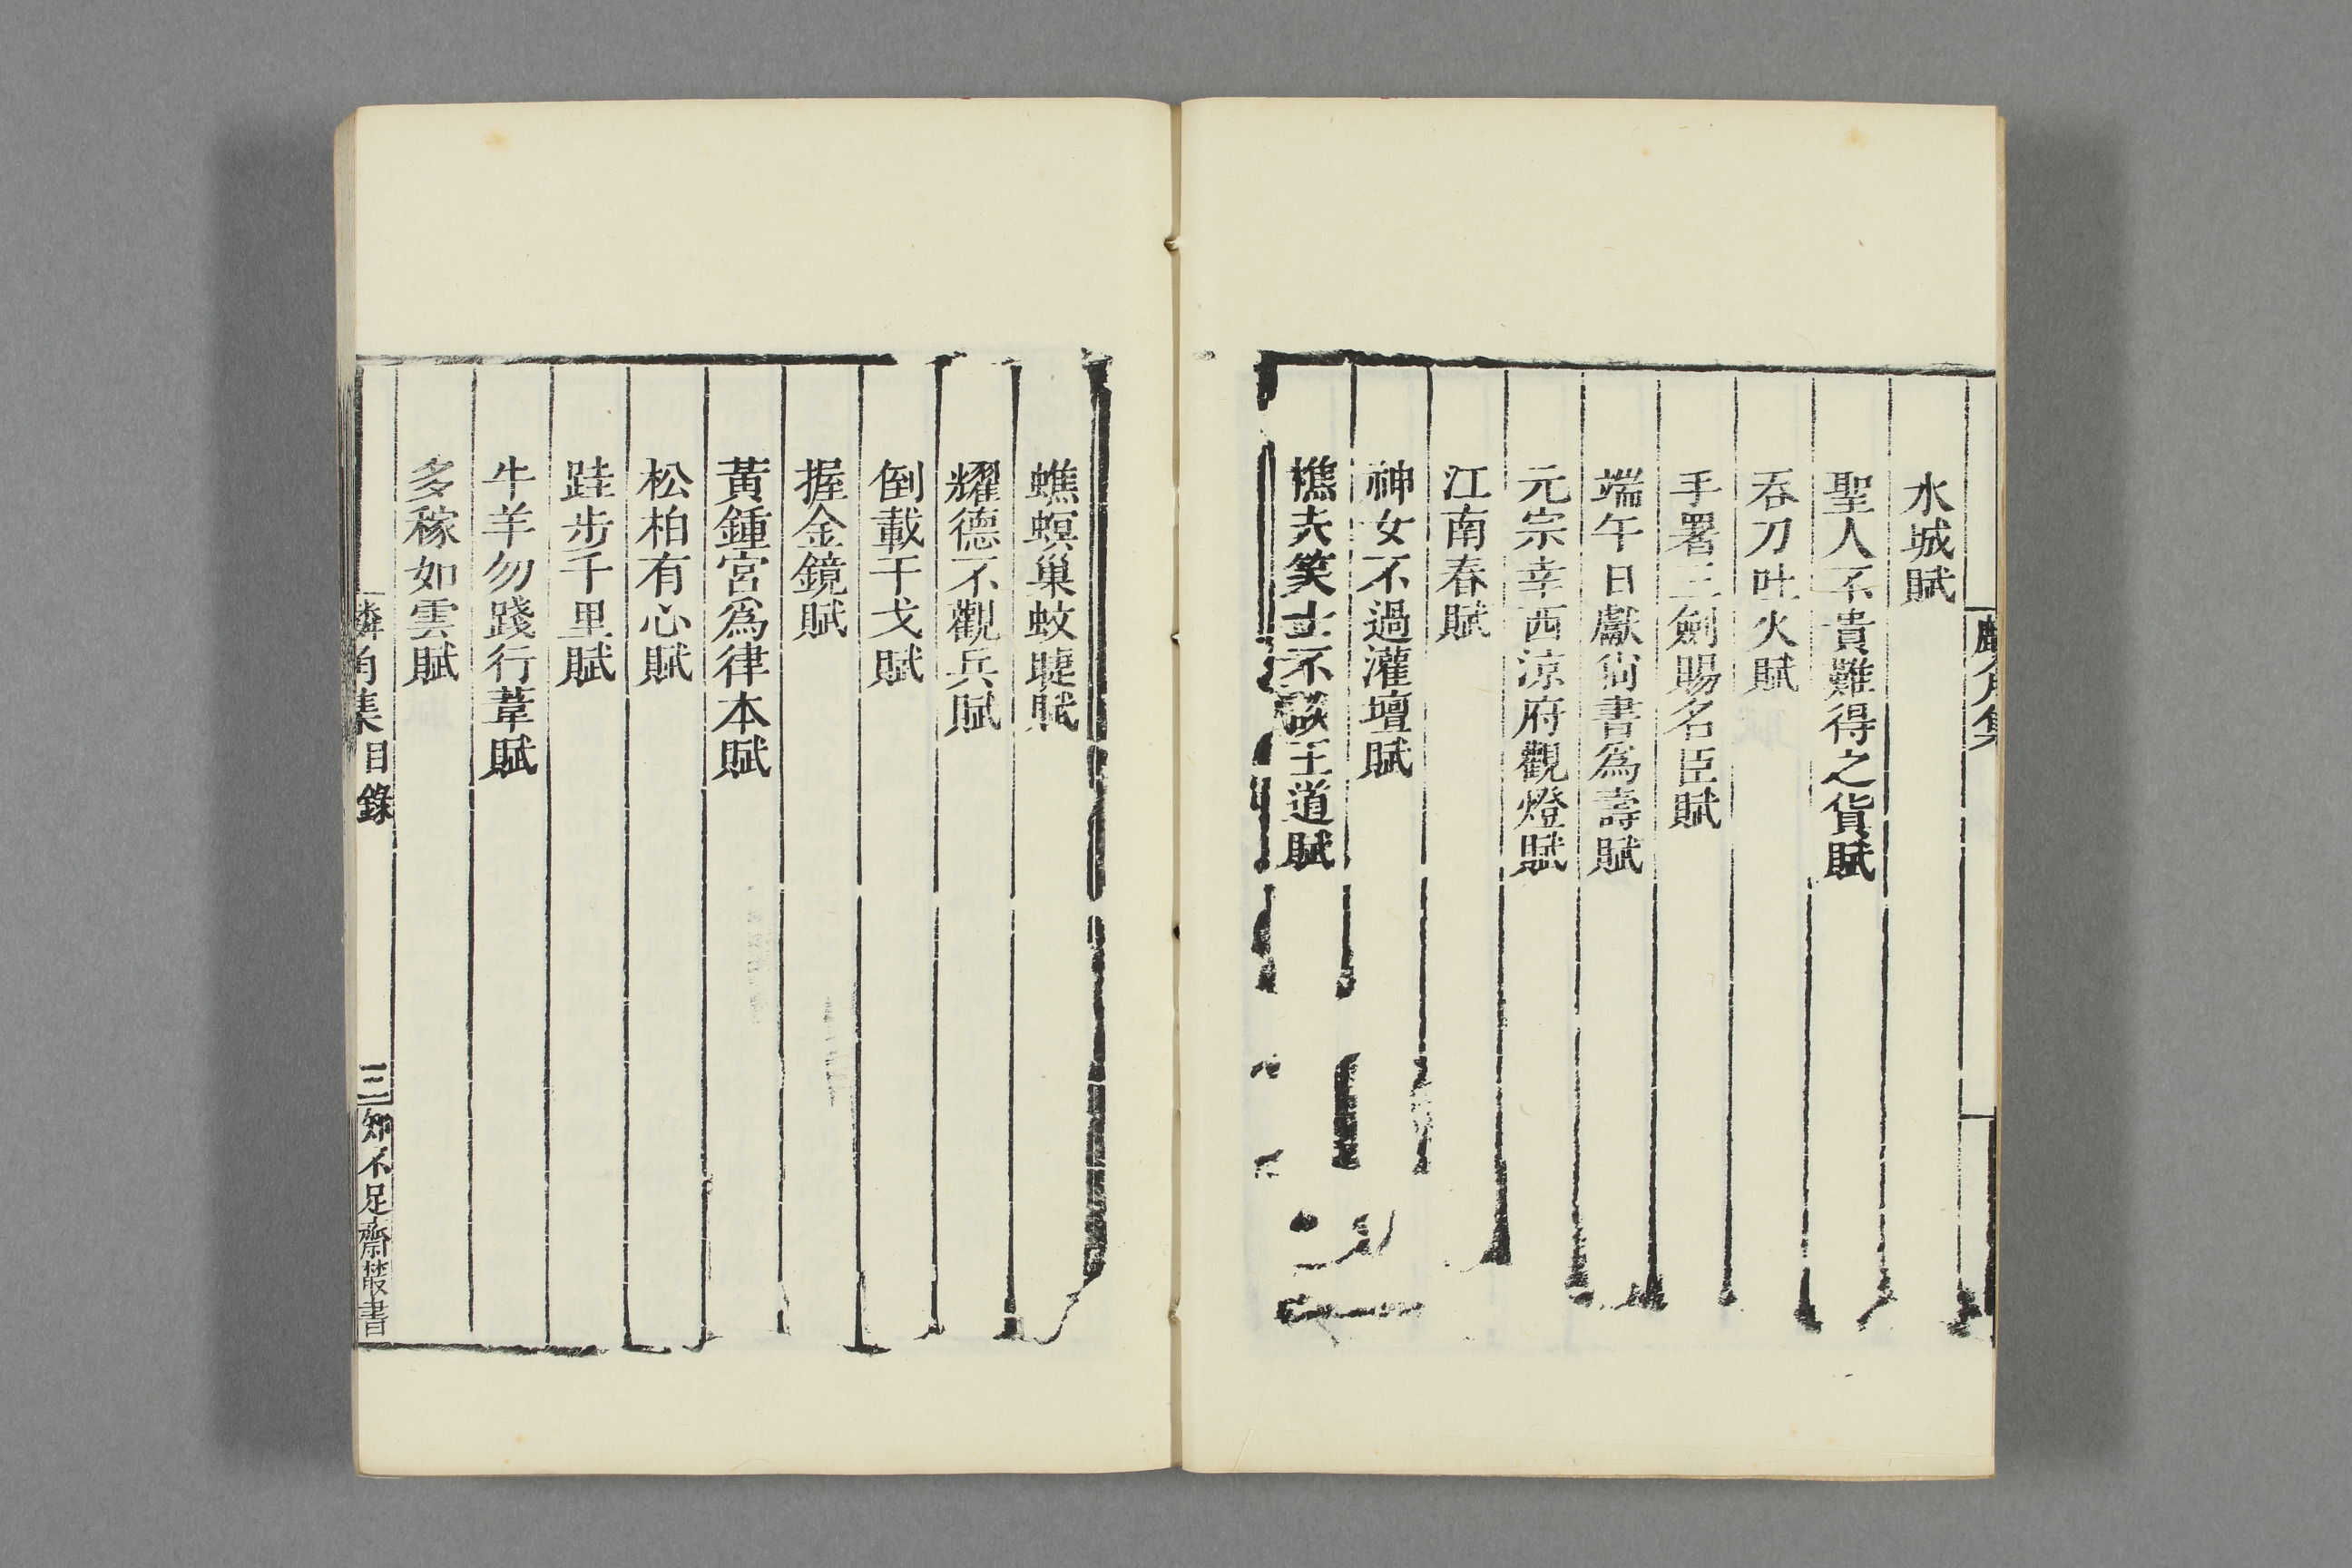 麟角集
水城賦
聖人不貴難得之貨賦
吞刀吐火賦
手署三劍賜名臣賦
端午日獻尙書爲壽賦
元宗幸西涼府觀燈賦
江南春賦
神女不過灌壇賦
樵夫笑士不談王道賦
蟭螟巢蚊睫賦
耀德不觀兵賦
倒載干戈賦
握金鏡賦
黃鍾宮爲律本賦
松柏有心賦
跬步千里賦
牛羊勿踐行葦賦
多稼如雲賦
麟角集 目錄 三 知不足齋叢書